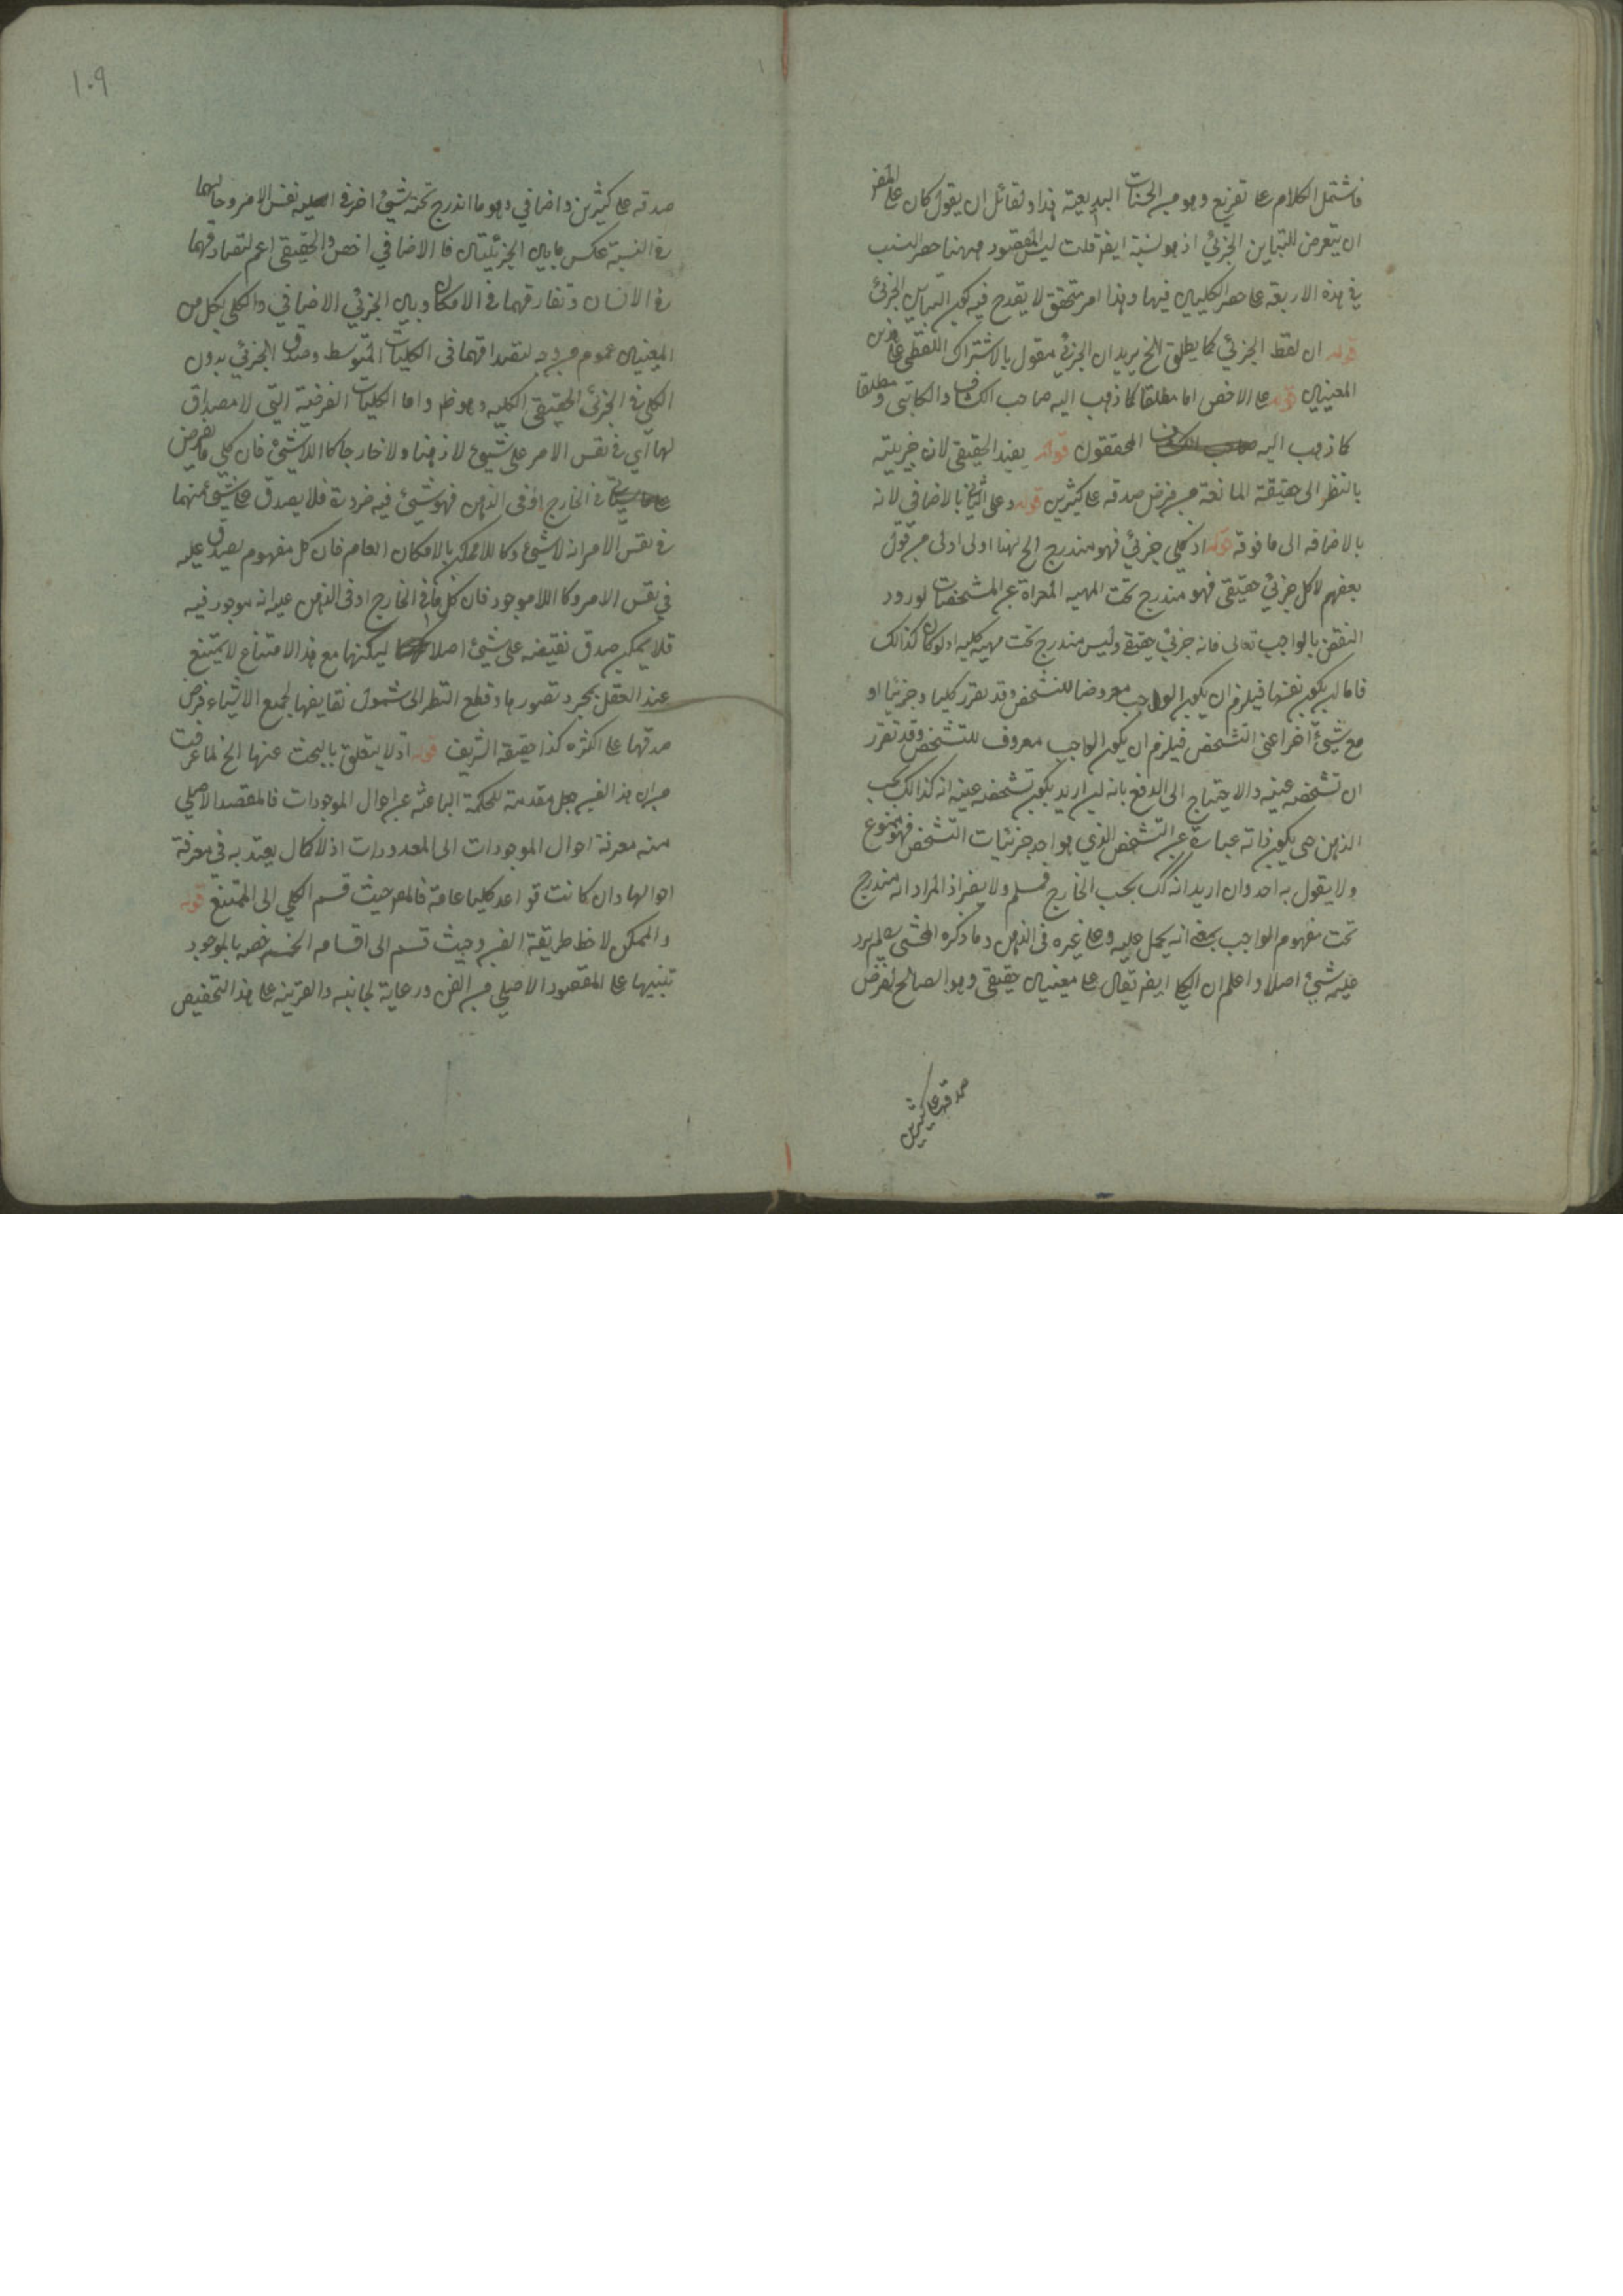 فاشتمل الكلام على تفريع وهو من الحسنات البديعية هذا ولقائل ان يقول كان على المص
ان يتعرض للتباين الجزئي اذ هو نسبة ايض قلت ليس المقصود ههنا حصر النسب
في هذه الاربعة بل حصر الكليين فيها وهذا امر متحقق لا يقدح فيه كون التباين الجزئي
قوله ان لفظ الجزئي كما يطلق الخ يريد ان الجزئي مقول بالاشتراك اللفظي على هذين
المعنيين قوله على الاخص اما مطلقا كما ذهب اليه صاحب الكشاف والكاتبى و مطلقا
كما ذهب اليه المحققون قوله يفيد الحقيقي لان جزئيته
بالنظر الى حقيقة المانعة من فرض صدقه على كثيرين قوله وعلى الثاني بالاضافي لانه
بالاضافه الى ما فوقه قوله اذ كلى جزئي فهو مندرج الخ لهنا اولى اولى من قول
بعضهم لا كل جزئي حقيقي فهو مندرج تحت المهيه المعراة عن المشخصات لورود
النقض بالواجب تعالى فانه جزئي حقيقي وليس مندرج تحت مهية كليه اذ لو كان كذالك
فاما ان يكون نفسها فيلزم ان يكون الواجب معروضا للتشخص وقد تقرر كليا وجزئيا او
مع شيئ اخر اعنى التشخص فيلزم ان يكون الواجب معروف للتشخص وقد تقرر
ان تشخصه عينه والاحتياج الى الدفع بانه ان اريد يكون تشخصه عينه انه كذالك بحسب
الذهن حتى يكون ذاته عبارة عن التشخص الذي هو احد جزئيات التشخص فهو ممنوع
ولا يقول به احد وان اريد انه كك بحسب الخارج فمسلم ولا يضر اذ المراد انه مندرج
تحت مفهوم الواجب بمعنى انه يحمل عليه وعلى غيره فى الذهن وما ذكره المحشى لم يرد
عليه شيئ اصلا واعلم ان الكلى ايض يقال على معنيين حقيقي وهو الصالح لفرض
صدقه على كثيرين
١٠٩
صدقه على كثيرين واضافي وهو ما اندرج تحته شيئ اخر فى نفس الامر وحالهما
فى النسبة عكس ما بين الجزئيتين فا الاضافي اخص والحقيقي اعم لتصادقهما
فى الانسان وتفارقهما فى الامكان وبين الجزئي الاضافي والكلي بكل من
المعنيين عموم من وجه لتصادقهما فى الكليات المتوسط وصدق الجزئي بدون
الكلي فى الجزئي الحقيقي الكليه وهو ظ واما الكليات الفرضية التى لا مصداق
لها اي فى نفس الامر على شيئ لا ذهنا ولا خارجا كا اللاشيئ فان كلي ما يفرض
فى الخارج او فى الذهن فهو شيئ فيه ضرورة فلا يصدق على شيئ منهما
فى نفس الامر انه لا شيئ وكا للاممكن بالامكان العام فان كل مفهوم يصدق عليه
في نفس الامر وكا اللاموجود فان كل ما في الخارج او فى الذهن عليه انه موجود فيه
فلا يمكن صدق نقيضه على شيئ اصلا لكنها مع هذا الامتناع لا يمتنع
عند العقل بمجرد تصورها وقطع النظر الى شمول نقايضها لجميع الاشياء فرض
صدقها على اكثره كذا حققه الشريف قوله اذ لا يتعلق بالبحث عنها الخ لما عرفت
من ان هذا الفن جعل مقدمة للحكمة الباحثه عن احوال الموجودات فالمقصد الاصلي
منه معرفة احوال الموجودات الى المعدومات اذ لا كمال يعتد به في معرفة
احوالها وان كانت قواعد كليا عامة فالمص حيث قسم الكلي الى الممتنع قوله
والممكن لاحظ طريقة الفن وحيث قسم الى اقسامه الخمسه خصه بالموجود
تنبيها على المقصود الاصلي من الفن ورعاية لجانبه والقرينه على هذا التخصيص